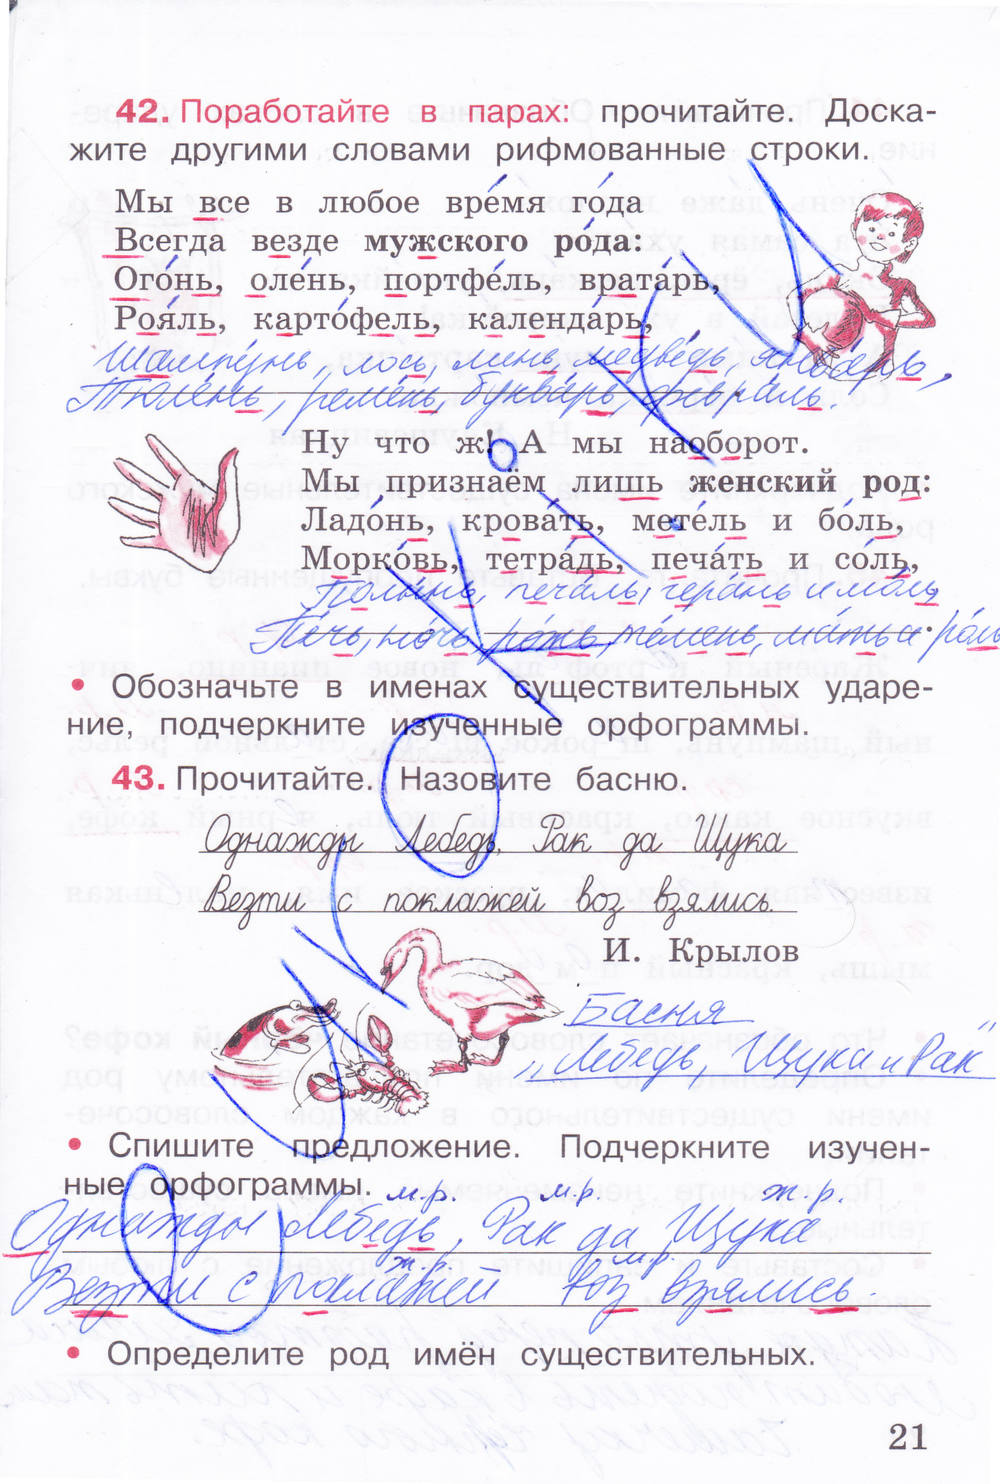 42. Поработайте в парах: прочитайте. Доска-
жите другими словами рифмованные строки.
Мы все в любое время года
Всегда везде мужского рода:
Огонь, олень, портфель, вратарь,
Рояль, картофель, календарь,
Шампунь, лось, линь, медведь, январь,
Тюлень, ремень, букварь, февраль.
Ну что ж! А мы наоборот.
Мы признаём лишь женский род:
Ладонь, кровать, метель и боль,
Морковь, тетрадь, печать и соль,
Полынь, печаль, герань и моль
Печь, ночь, рожь, темень, мать и роль
• Обозначьте в именах существительных ударе-
ние, подчеркните изученные орфограммы.
43. Прочитайте. Назовите басню.
Однажды Лебедь, Рак да Щука
Везти с поклажей воз взялись
И. Крылов
Басня
„Лебедь, Щука и Рак"
• Спишите предложение. Подчеркните изучен-
ные орфограммы.
м.р. м.р. ж.р.
Однажды Лебедь, Рак да Щука
ж.р. м.р.
Везти с поклажей воз взялись.
• Определите род имён существительных.
21